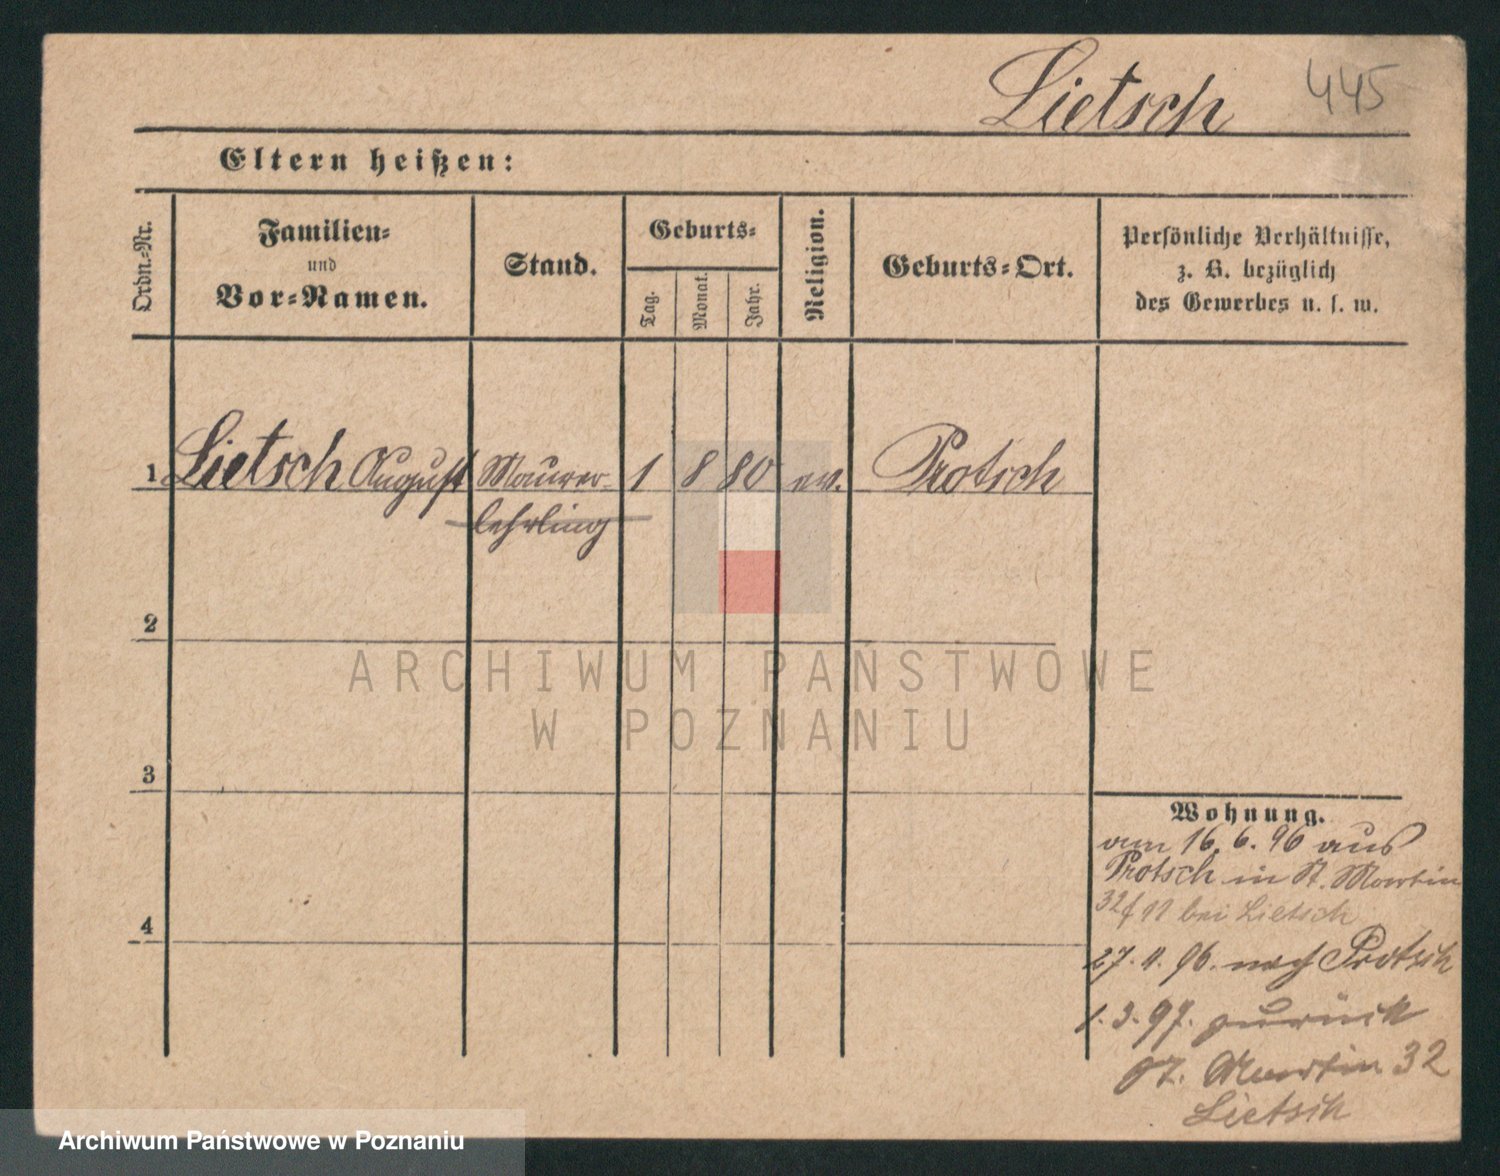 Lietsch 445
Eltern heißen:
Ordn.-Nr.
Familien-
und
Vor-Namen.
Stand.
Geburts-
Tag.
Monat.
Jahr.
Religion.
Geburts-Ort.
Persönliche Verhältnisse,
z. B. bezüglich
des Gewerbes u. s. w.
1 Lietsch August Maurer- 1 8 80 ev. Protsch
lehrling
2
3
4
Wohnung.
am 16.6.96 aus
Protsch in St. Martin
32 bei Lietsch
27. 96. nach Protsch
1.3.97. zurück
St. Martin 32
Lietsch
ARCHIWUM PAŃSTWOWE
W POZNANIU
Archiwum Państwowe w Poznaniu